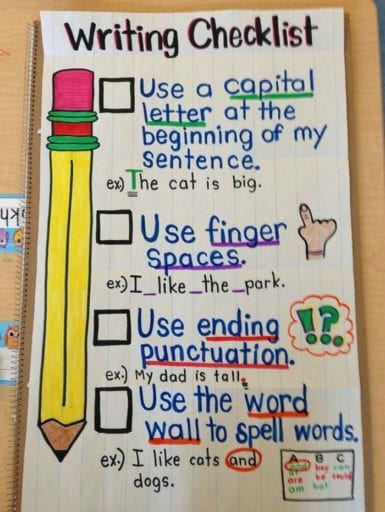 Writing Checklist
Use a capital
letter at the
beginning of my
sentence.
ex) The cat is big.
Use finger
spaces.
ex) I_like_the_park.
Use ending
punctuation.
!?.
ex.) My dad is tall.
Use the word
wall to spell words.
ex.) I like cats and
dogs.
A B C
and boy can
at
are be could
am bat